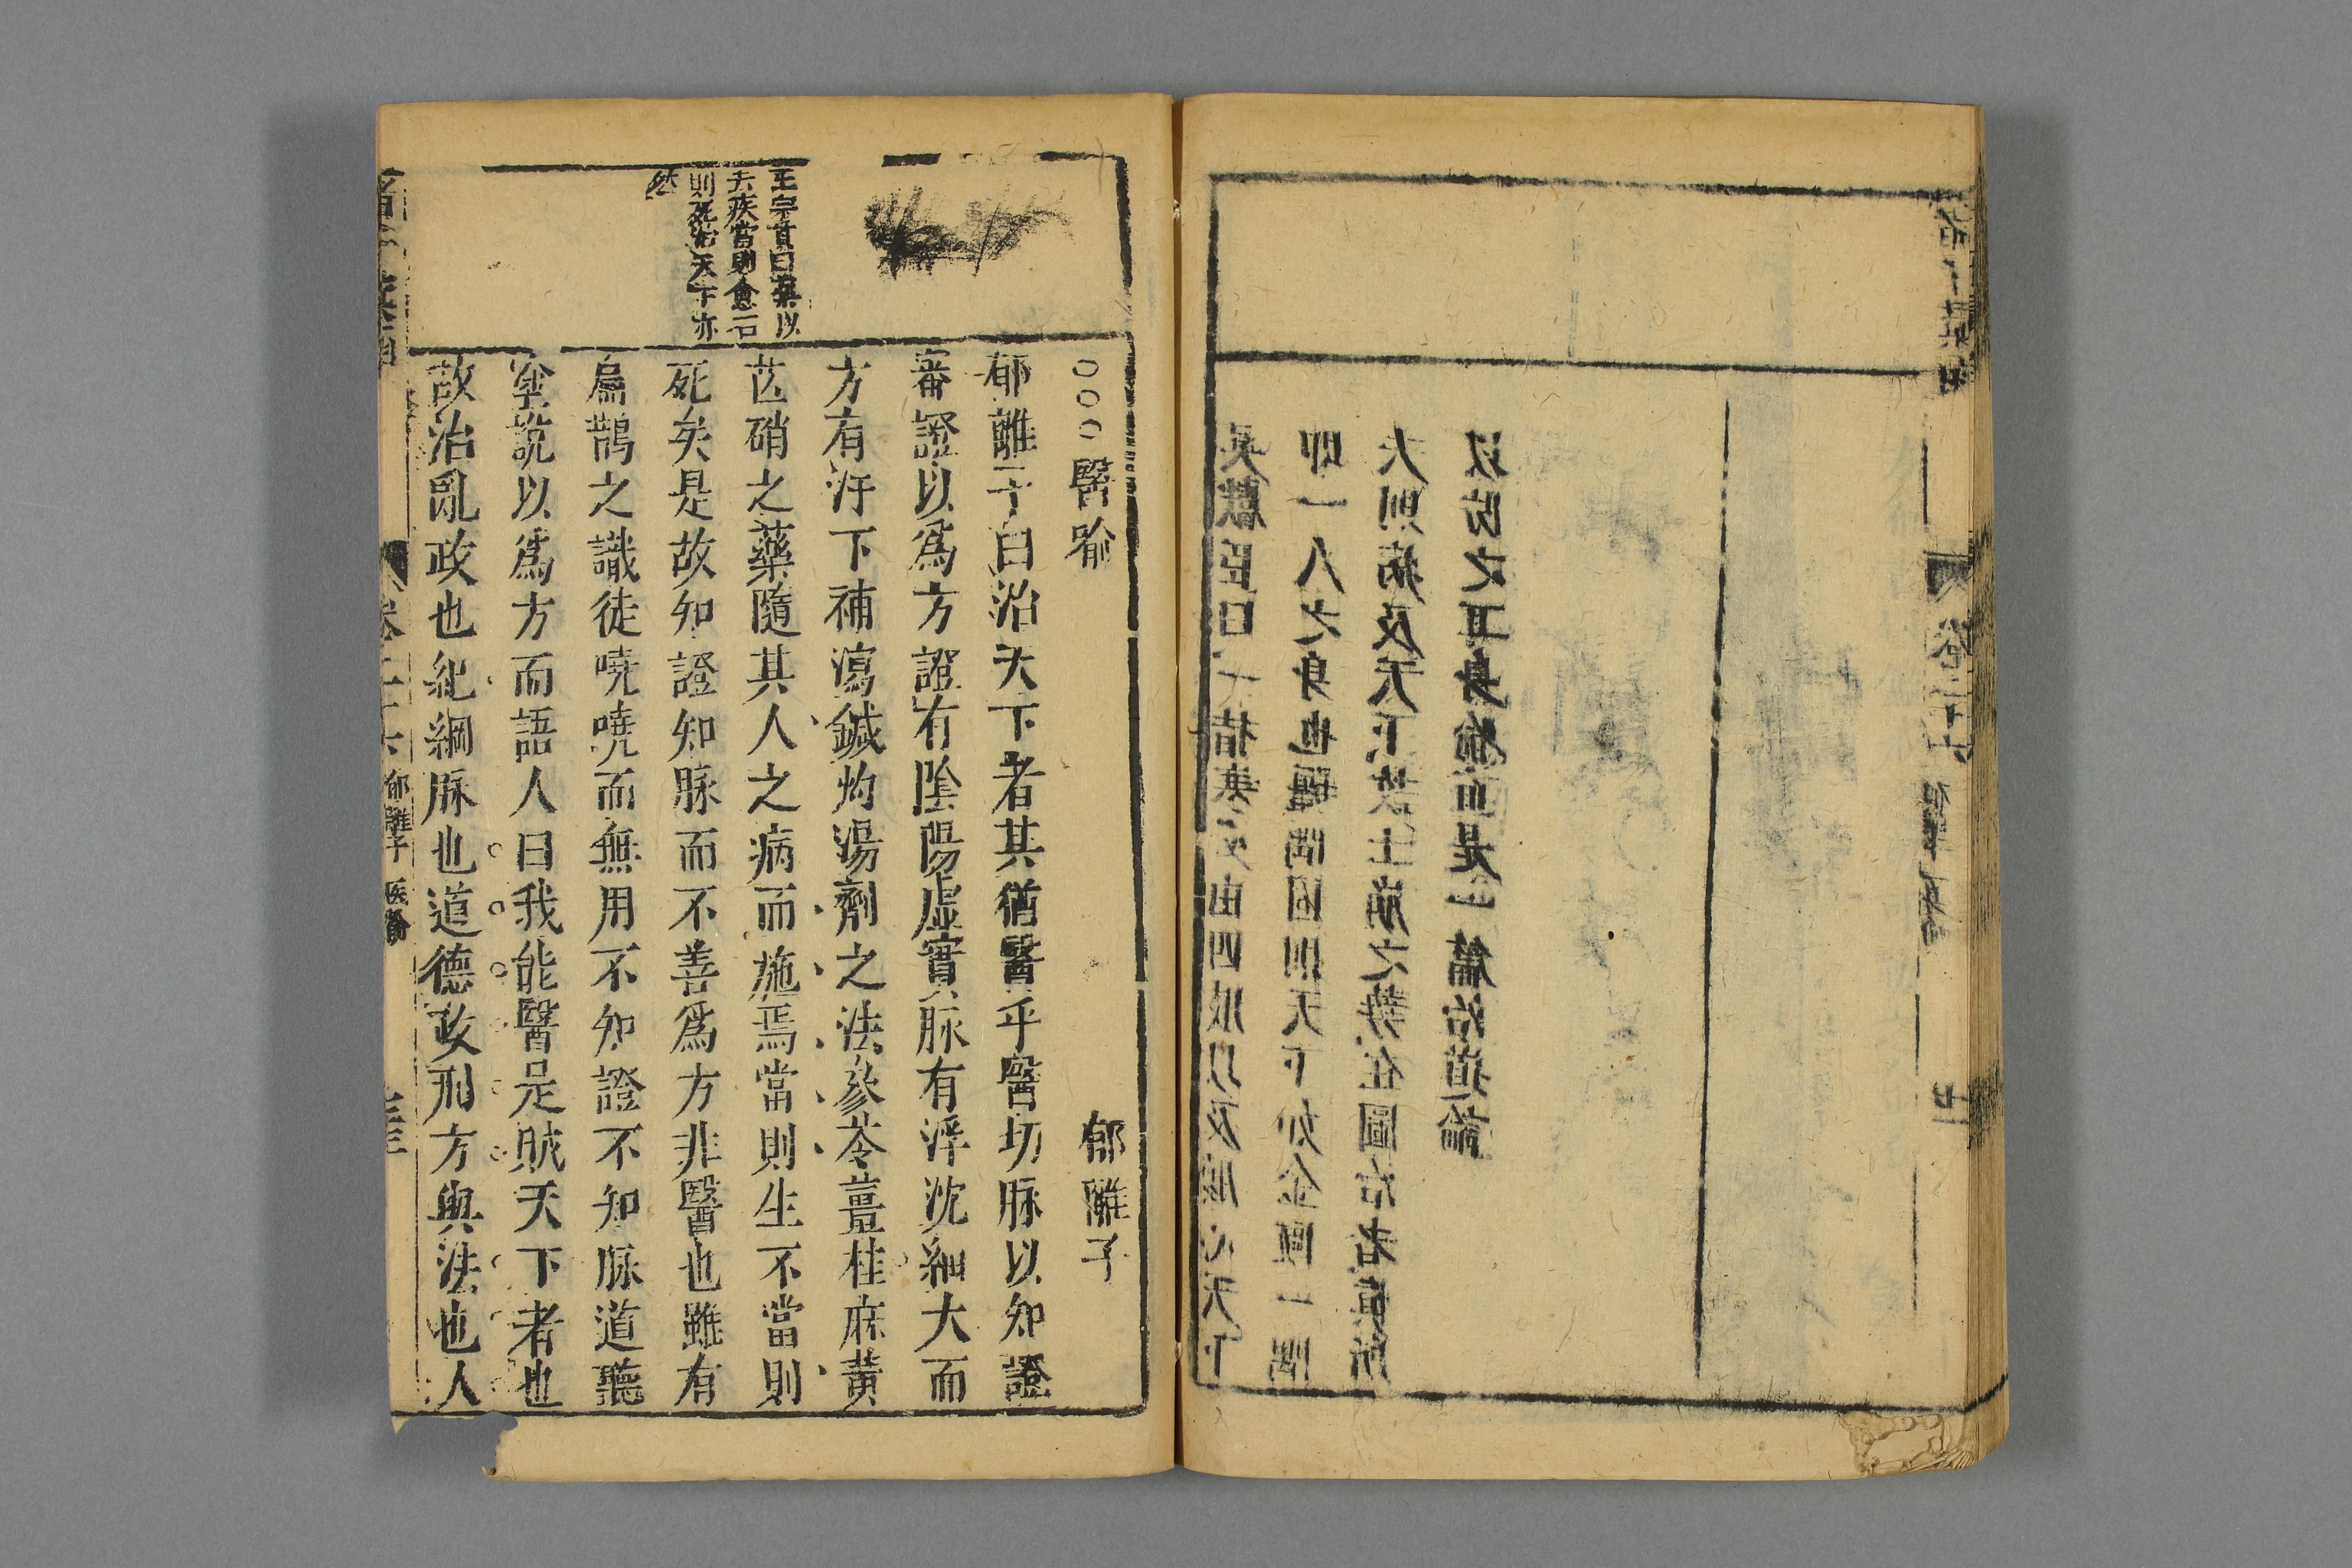 吳獻臣曰一指寒 由四肢以及腹心天下
即一人之身也疆隅固則天下如金甌一隅
大則病及天下故土崩之勢在圖治者慎所
以防之耳身喻而是一篇治道論
王宗貫曰藥以
去疾當則愈否
則死治天下亦
然
○○○醫喻 郁離子
郁離子曰治天下者其猶醫乎醫切脉以知證
審證以爲方證有陰陽虛實脉有浮沈細大而
方有汗下補瀉鍼灼湯劑之法參苓薑桂麻黃
芒硝之藥隨其人之病而施焉當則生不當則
死矣是故知證知脉而不善爲方非醫也雖有
扁鵲之識徒嘵嘵而無用不知證不知脉道聽
塗說以爲方而語人曰我能醫是賊天下者也
故治亂政也紀綱脉也道德政刑方與法也人
卷二十六 郁離子 医喻